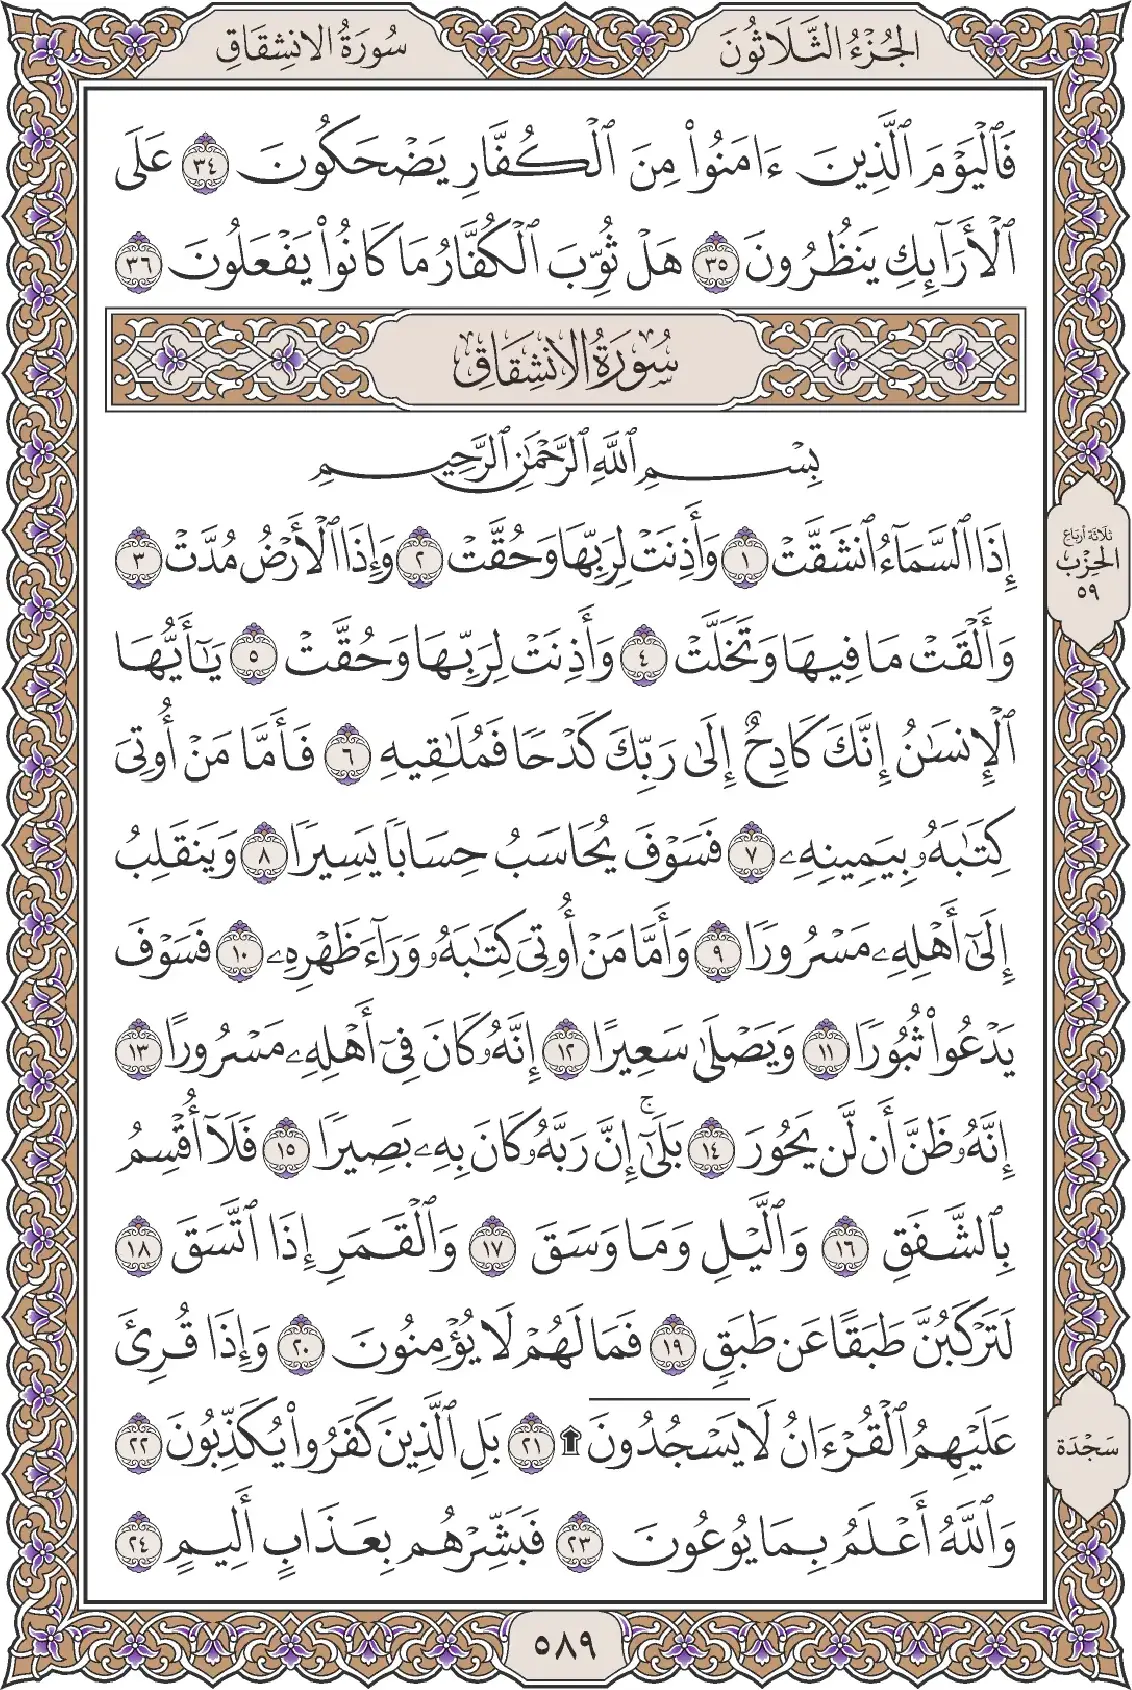 الجُزْءُ الثَّلَاثُونَ
سُورَةُ الانشِقَاقِ
فَٱلْيَوْمَ ٱلَّذِينَ ءَامَنُوا۟ مِنَ ٱلْكُفَّارِ يَضْحَكُونَ ٣٤ عَلَى
ٱلْأَرَآئِكِ يَنظُرُونَ ٣٥ هَلْ ثُوِّبَ ٱلْكُفَّارُ مَا كَانُوا۟ يَفْعَلُونَ ٣٦
سُورَةُ الانشِقَاقِ
بِسْمِ ٱللَّهِ ٱلرَّحْمَٰنِ ٱلرَّحِيمِ
إِذَا ٱلسَّمَآءُ ٱنشَقَّتْ ١ وَأَذِنَتْ لِرَبِّهَا وَحُقَّتْ ٢ وَإِذَا ٱلْأَرْضُ مُدَّتْ ٣
وَأَلْقَتْ مَا فِيهَا وَتَخَلَّتْ ٤ وَأَذِنَتْ لِرَبِّهَا وَحُقَّتْ ٥ يَٰٓأَيُّهَا
ٱلْإِنسَٰنُ إِنَّكَ كَادِحٌ إِلَىٰ رَبِّكَ كَدْحًا فَمُلَٰقِيهِ ٦ فَأَمَّا مَنْ أُوتِىَ
كِتَٰبَهُۥ بِيَمِينِهِۦ ٧ فَسَوْفَ يُحَاسَبُ حِسَابًا يَسِيرًا ٨ وَيَنقَلِبُ
إِلَىٰٓ أَهْلِهِۦ مَسْرُورًا ٩ وَأَمَّا مَنْ أُوتِىَ كِتَٰبَهُۥ وَرَآءَ ظَهْرِهِۦ ١٠ فَسَوْفَ
يَدْعُوا۟ ثُبُورًا ١١ وَيَصْلَىٰ سَعِيرًا ١٢ إِنَّهُۥ كَانَ فِىٓ أَهْلِهِۦ مَسْرُورًا ١٣
إِنَّهُۥ ظَنَّ أَن لَّن يَحُورَ ١٤ بَلَىٰٓۚ إِنَّ رَبَّهُۥ كَانَ بِهِۦ بَصِيرًا ١٥ فَلَآ أُقْسِمُ
بِٱلشَّفَقِ ١٦ وَٱلَّيْلِ وَمَا وَسَقَ ١٧ وَٱلْقَمَرِ إِذَا ٱتَّسَقَ ١٨
لَتَرْكَبُنَّ طَبَقًا عَن طَبَقٍ ١٩ فَمَا لَهُمْ لَا يُؤْمِنُونَ ٢٠ وَإِذَا قُرِئَ
عَلَيْهِمُ ٱلْقُرْءَانُ لَا يَسْجُدُونَ ۩ ٢١ بَلِ ٱلَّذِينَ كَفَرُوا۟ يُكَذِّبُونَ ٢٢
وَٱللَّهُ أَعْلَمُ بِمَا يُوعُونَ ٢٣ فَبَشِّرْهُم بِعَذَابٍ أَلِيمٍ ٢٤
ثَلَاثَة أَربَاع
الحِزْب
٥٩
سَجْدَة
٥٨٩